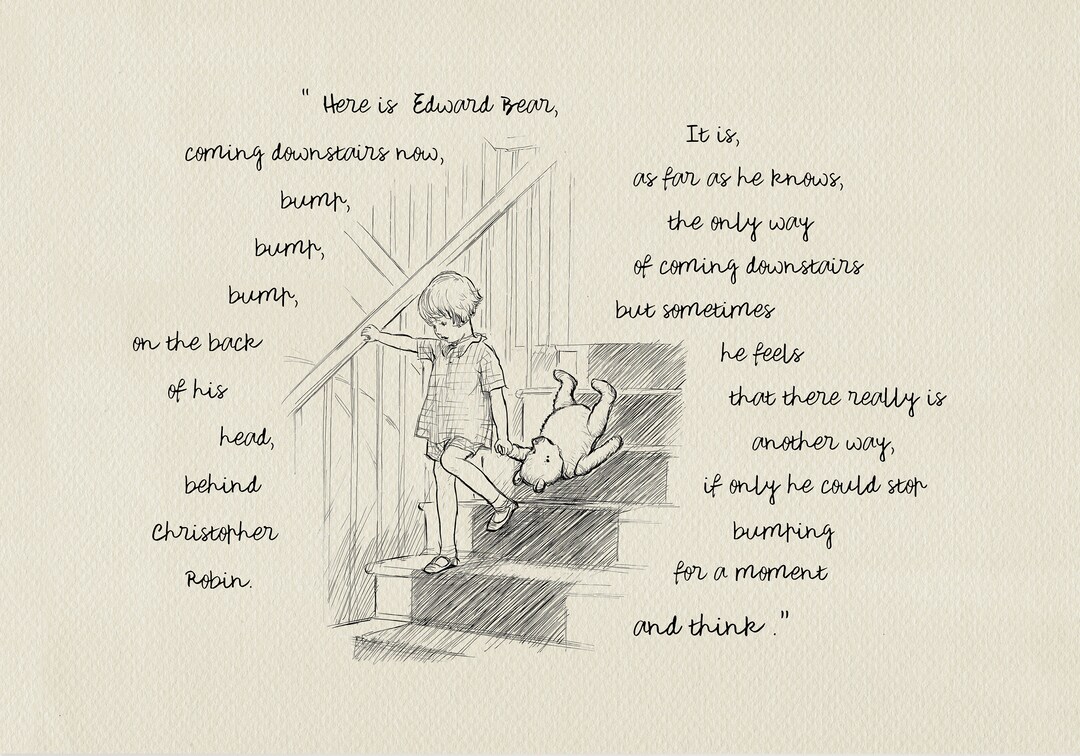 " Here is Edward Bear,
coming downstairs now,
bump,
bump,
bump,
on the back
of his
head,
behind
Christopher
Robin.
It is,
as far as he knows,
the only way
of coming downstairs
but sometimes
he feels
that there really is
another way,
if only he could stop
bumping
for a moment
and think ."